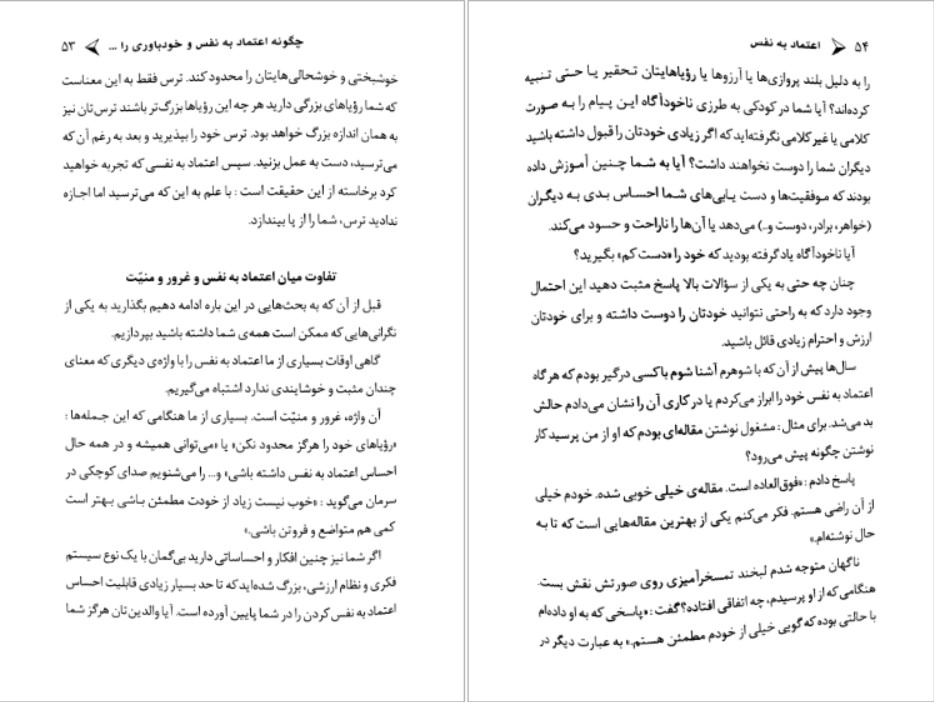 چگونه اعتماد به نفس و خودباوری را ... ۵۳
خوشبختی و خوشحالی‌هایتان را محدود کند. ترس فقط به این معناست
که شما رؤیاهای بزرگی دارید هر چه این رؤیاها بزرگ‌تر باشند ترس‌تان نیز
به همان اندازه بزرگ خواهد بود. ترس خود را بپذیرید و بعد به رغم آن که
می‌ترسید، دست به عمل بزنید. سپس اعتماد به نفسی که تجربه خواهید
کرد برخاسته از این حقیقت است : با علم به این که می‌ترسید اما اجازه
ندادید ترس، شما را از پا بیندازد.
تفاوت میان اعتماد به نفس و غرور و منیّت
قبل از آن که به بحث‌هایی در این باره ادامه دهیم بگذارید به یکی از
نگرانی‌هایی که ممکن است همه‌ی شما داشته باشید بپردازیم.
گاهی اوقات بسیاری از ما اعتماد به نفس را با واژه‌ی دیگری که معنای
چندان مثبت و خوشایندی ندارد اشتباه می‌گیریم.
آن واژه، غرور و منیّت است. بسیاری از ما هنگامی که این جمله‌ها :
«رؤیاهای خود را هرگز محدود نکن» یا «می‌توانی همیشه و در همه حال
احساس اعتماد به نفس داشته باشی» و... را می‌شنویم صدای کوچکی در
سرمان می‌گوید : «خوب نیست زیاد از خودت مطمئن باشی بهتر است
کمی هم متواضع و فروتن باشی.»
اگر شما نیز چنین افکار و احساساتی دارید بی‌گمان با یک نوع سیستم
فکری و نظام ارزشی، بزرگ شده‌اید که تا حد بسیار زیادی قابلیت احساس
اعتماد به نفس کردن را در شما پایین آورده است. آیا والدین‌تان هرگز شما
۵۴ اعتماد به نفس
را به دلیل بلند پروازی‌ها یا آرزوها یا رؤیاهایتان تحقیر یا حتی تنبیه
کرده‌اند؟ آیا شما در کودکی به طرزی ناخودآگاه این پیام را به صورت
کلامی یا غیر کلامی نگرفته‌اید که اگر زیادی خودتان را قبول داشته باشید
دیگران شما را دوست نخواهند داشت؟ آیا به شما چنین آموزش داده
بودند که موفقیت‌ها و دست یابی‌های شما احساس بدی به دیگران
(خواهر، برادر، دوست و..) می‌دهد یا آن‌ها را ناراحت و حسود می‌کند.
آیا ناخودآگاه یاد گرفته بودید که خود را «دست کم» بگیرید؟
چنان چه حتی به یکی از سؤالات بالا پاسخ مثبت دهید این احتمال
وجود دارد که به راحتی نتوانید خودتان را دوست داشته و برای خودتان
ارزش و احترام زیادی قائل باشید.
سال‌ها پیش از آن که با شوهرم آشنا شوم باکسی درگیر بودم که هر گاه
اعتماد به نفس خود را ابراز می‌کردم یا در کاری آن را نشان می‌دادم حالش
بد می‌شد. برای مثال : مشغول نوشتن مقاله‌ای بودم که او از من پرسید کار
نوشتن چگونه پیش می‌رود؟
پاسخ دادم : «فوق‌العاده است. مقاله‌ی خیلی خوبی شده. خودم خیلی
از آن راضی هستم. فکر می‌کنم یکی از بهترین مقاله‌هایی است که تا به
حال نوشته‌ام.»
ناگهان متوجه شدم لبخند تمسخرآمیزی روی صورتش نقش بست.
هنگامی که از او پرسیدم، چه اتفاقی افتاده؟ گفت : «پاسخی که به او داده‌ام
با حالتی بوده که گویی خیلی از خودم مطمئن هستم.» به عبارت دیگر در